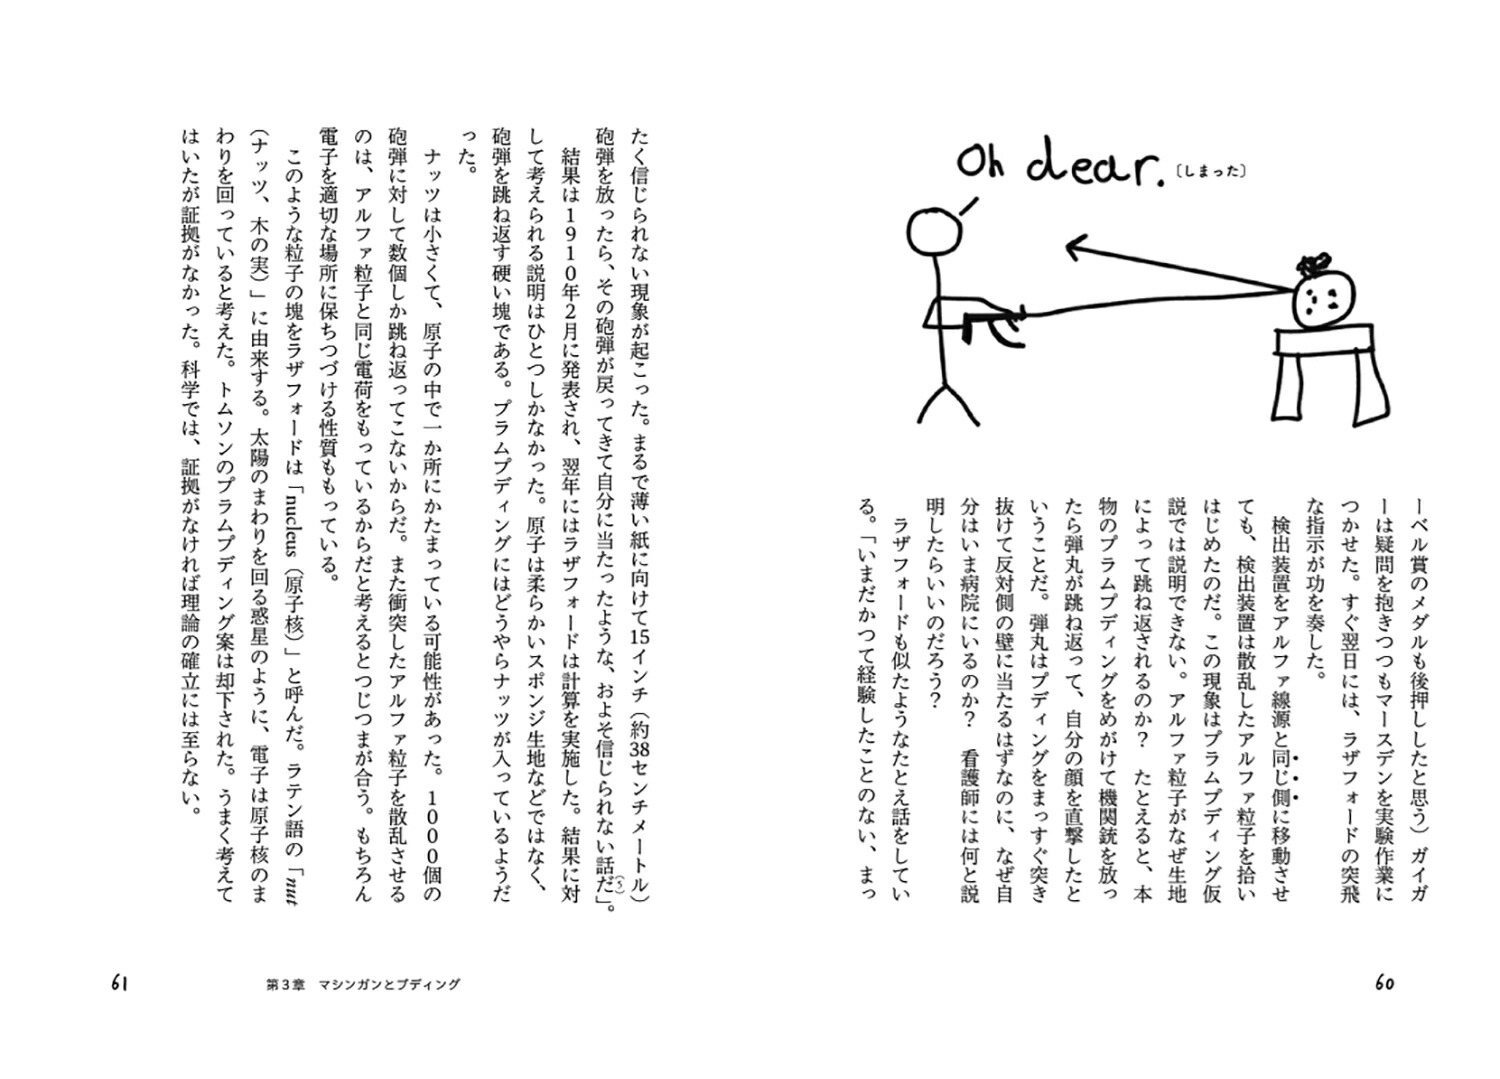 Oh dear.〔しまった〕
ーベル賞のメダルも後押ししたと思う）ガイガ
ーは疑問を抱きつつもマースデンを実験作業に
つかせた。すぐ翌日には、ラザフォードの突飛
な指示が功を奏した。
検出装置をアルファ線源と同じ側に移動させ
ても、検出装置は散乱したアルファ粒子を拾い
はじめたのだ。この現象はプラムプディング仮
説では説明できない。アルファ粒子がなぜ生地
によって跳ね返されるのか？　たとえると、本
物のプラムプディングをめがけて機関銃を放っ
たら弾丸が跳ね返って、自分の顔を直撃したと
いうことだ。弾丸はプディングをまっすぐ突き
抜けて反対側の壁に当たるはずなのに、なぜ自
分はいま病院にいるのか？　看護師には何と説
明したらいいのだろう？
ラザフォードも似たようなたとえ話をしてい
る。「いまだかつて経験したことのない、まっ
60
たく信じられない現象が起こった。まるで薄い紙に向けて15インチ（約38センチメートル）
砲弾を放ったら、その砲弾が戻ってきて自分に当たったような、およそ信じられない話だ」（5）。
結果は1910年2月に発表され、翌年にはラザフォードは計算を実施した。結果に対
して考えられる説明はひとつしかなかった。原子は柔らかいスポンジ生地などではなく、
砲弾を跳ね返す硬い塊である。プラムプディングにはどうやらナッツが入っているようだ
った。
ナッツは小さくて、原子の中で一か所にかたまっている可能性があった。1000個の
砲弾に対して数個しか跳ね返ってこないからだ。また衝突したアルファ粒子を散乱させる
のは、アルファ粒子と同じ電荷をもっているからだと考えるとつじつまが合う。もちろん
電子を適切な場所に保ちつづける性質ももっている。
このような粒子の塊をラザフォードは「nucleus（原子核）」と呼んだ。ラテン語の「nut
（ナッツ、木の実）」に由来する。太陽のまわりを回る惑星のように、電子は原子核のま
わりを回っていると考えた。トムソンのプラムプディング案は却下された。うまく考えて
はいたが証拠がなかった。科学では、証拠がなければ理論の確立には至らない。
第3章　マシンガンとプディング
61